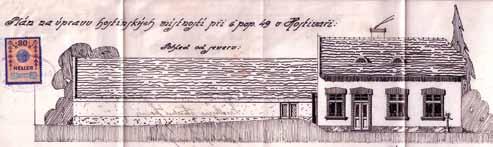 Plán na úpravu hostinských místností při č pop. 49 v Hostivaři:
Pohled od severu:
80
HELLER